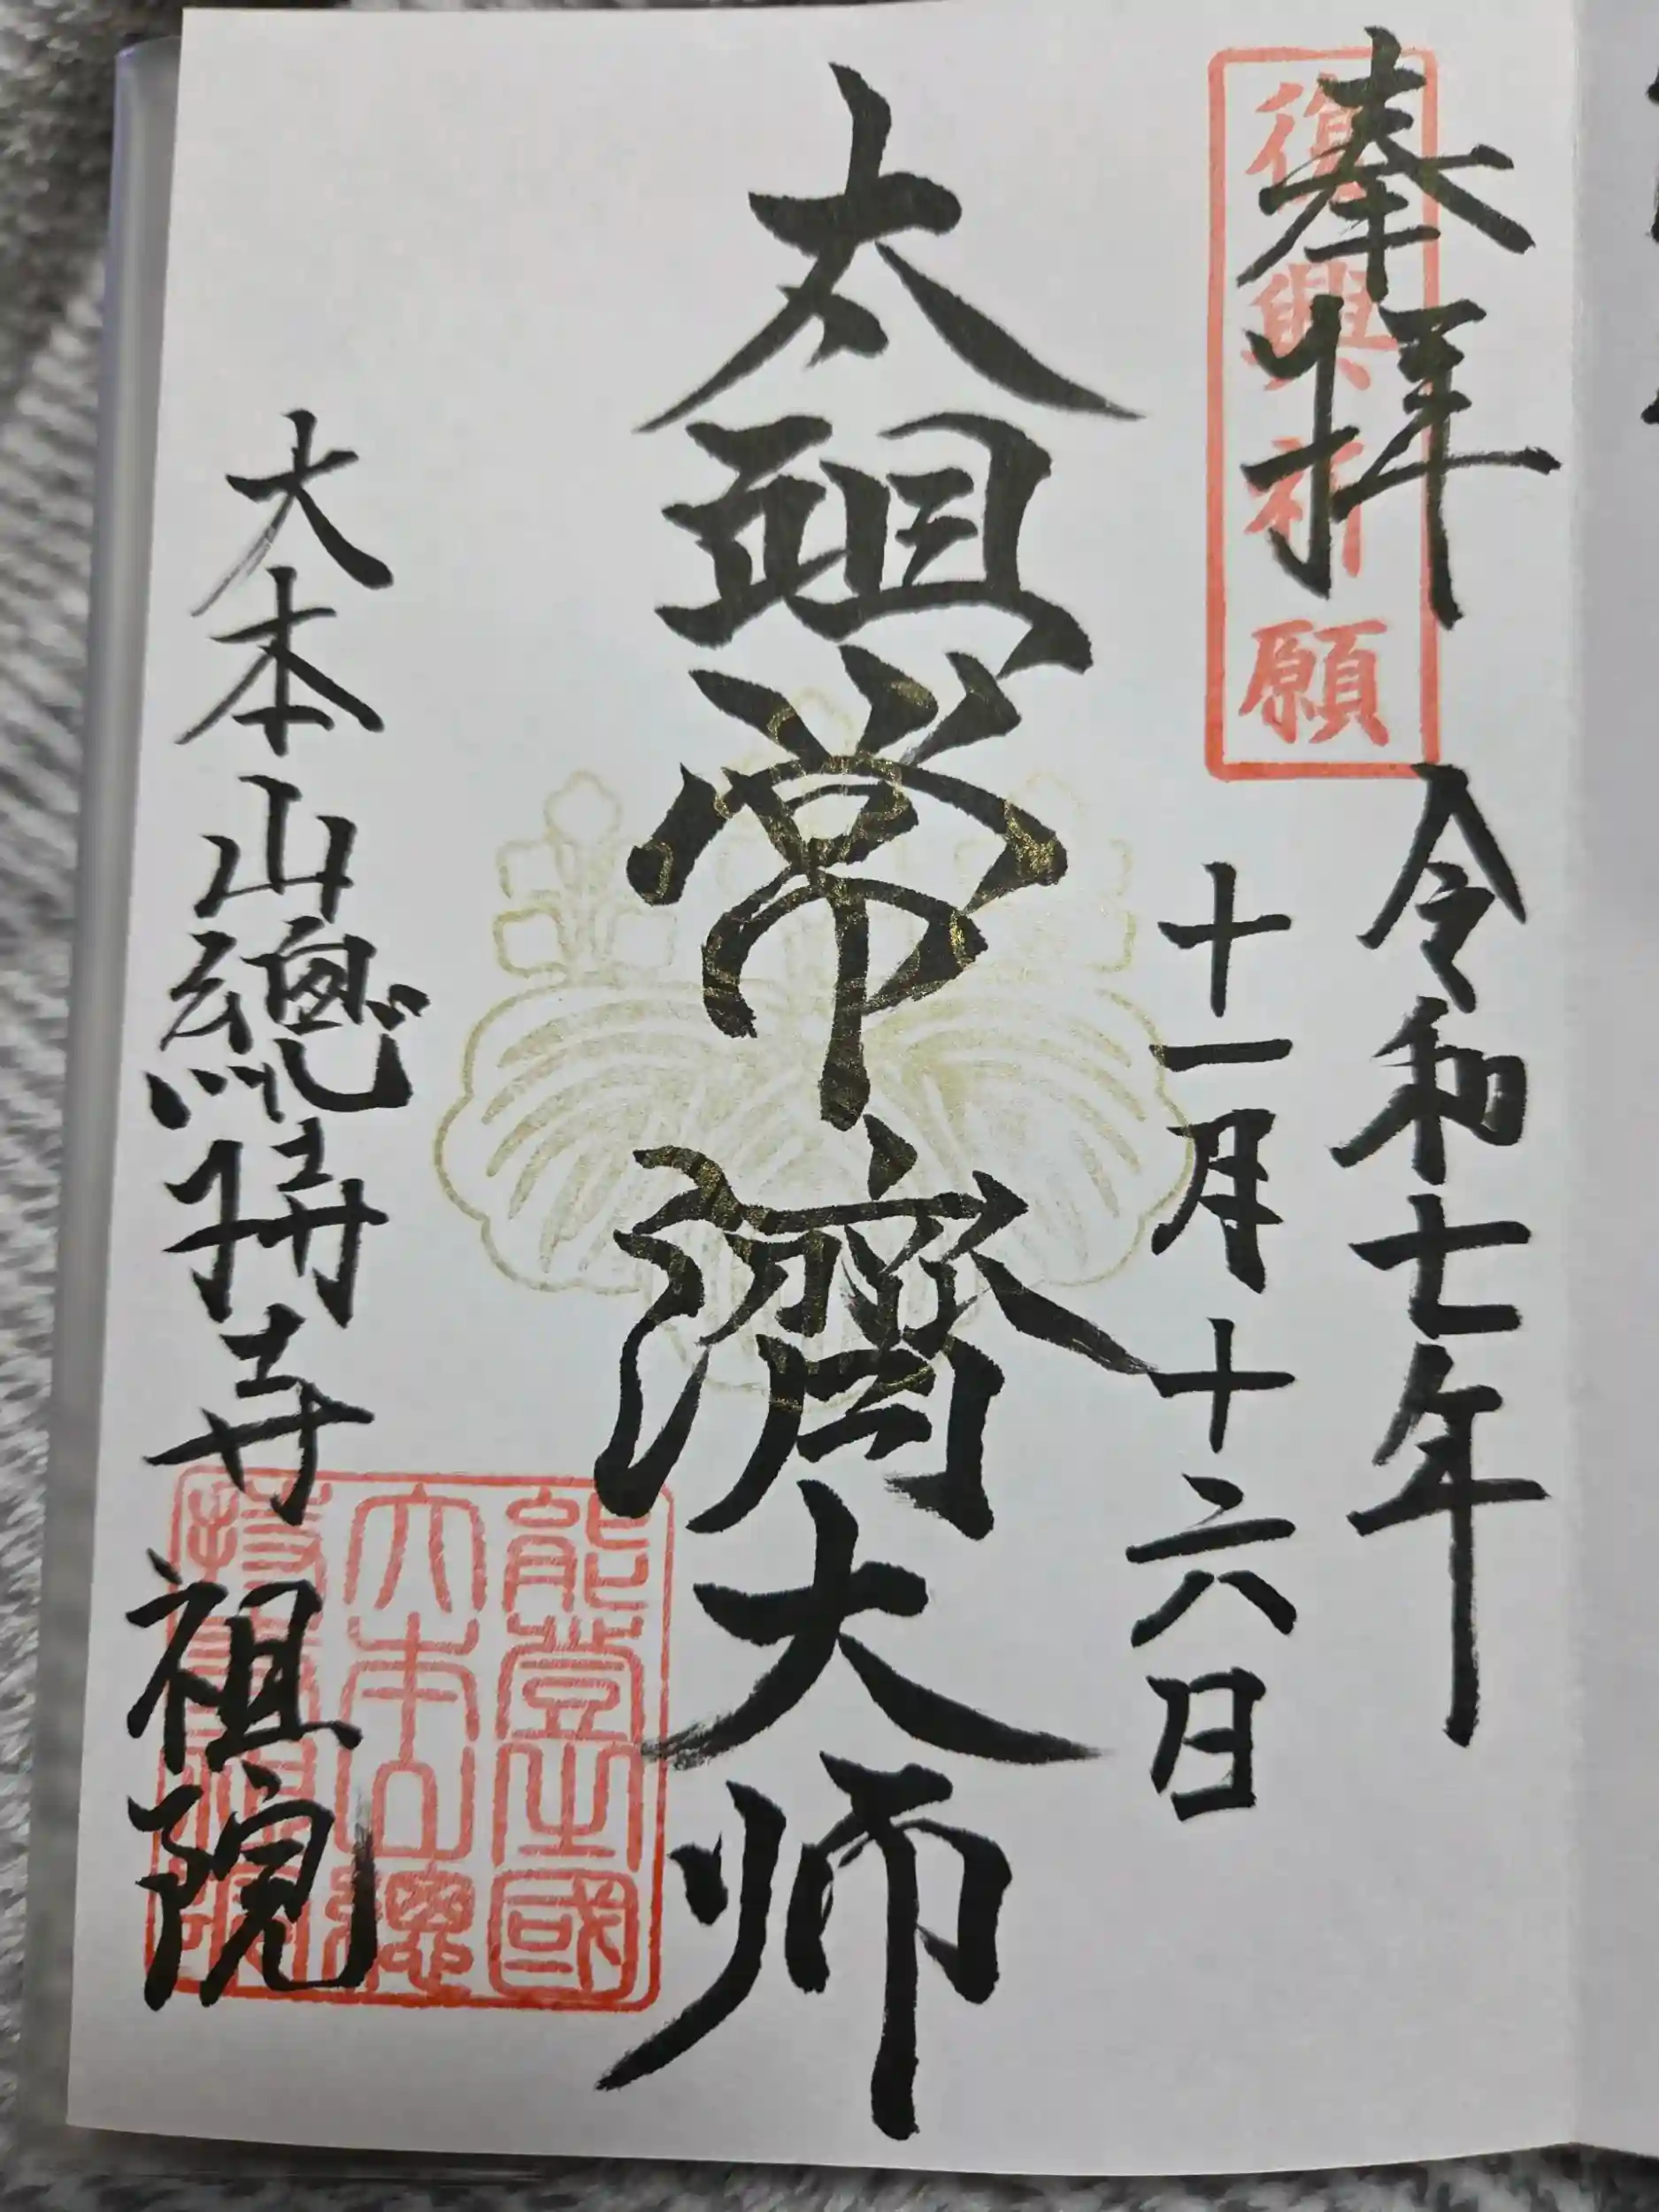 奉拝
復興祈願
令和七年
十一月十六日
太祖常濟大师
大本山總持寺
祖院
能登國
大本山總
持寺祖院